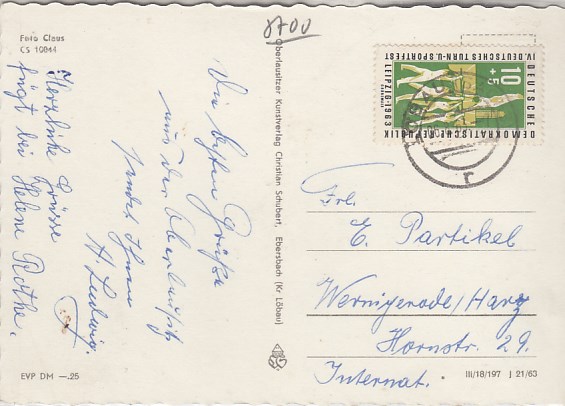 8700
Foto Claus
CS 10044
Herzliche Grüsse
fügt bei
Helene Rothe.
Die besten Grüße
aus der Oberlausitz
sendet Ihnen
H. Ludwig.
EVP DM —.25
Oberlausitzer Kunstverlag Christian Schubert, Ebersbach (Kr. Löbau)
IV. DEUTSCHES TURN- U. SPORTFEST
LEIPZIG · 1963
10
+5
DEUTSCHE
DEMOKRATISCHE REPUBLIK
r
Frl.
E. Partikel
Wernigerode/Harz
Hornstr. 29.
Internat.
III/18/197 J 21/63